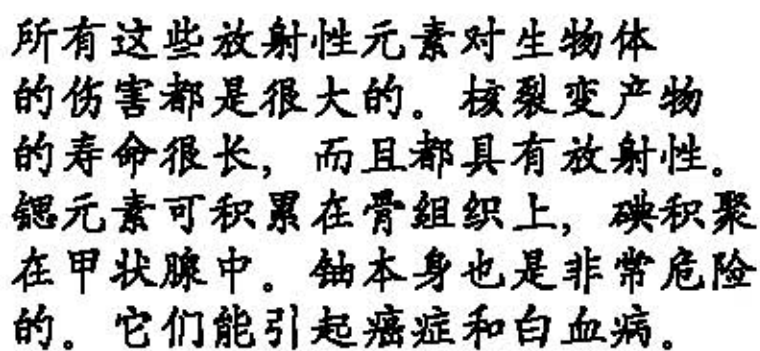 所有这些放射性元素对生物体
的伤害都是很大的。核裂变产物
的寿命很长，而且都具有放射性。
锶元素可积累在骨组织上，碘积聚
在甲状腺中。铀本身也是非常危险
的。它们能引起癌症和白血病。